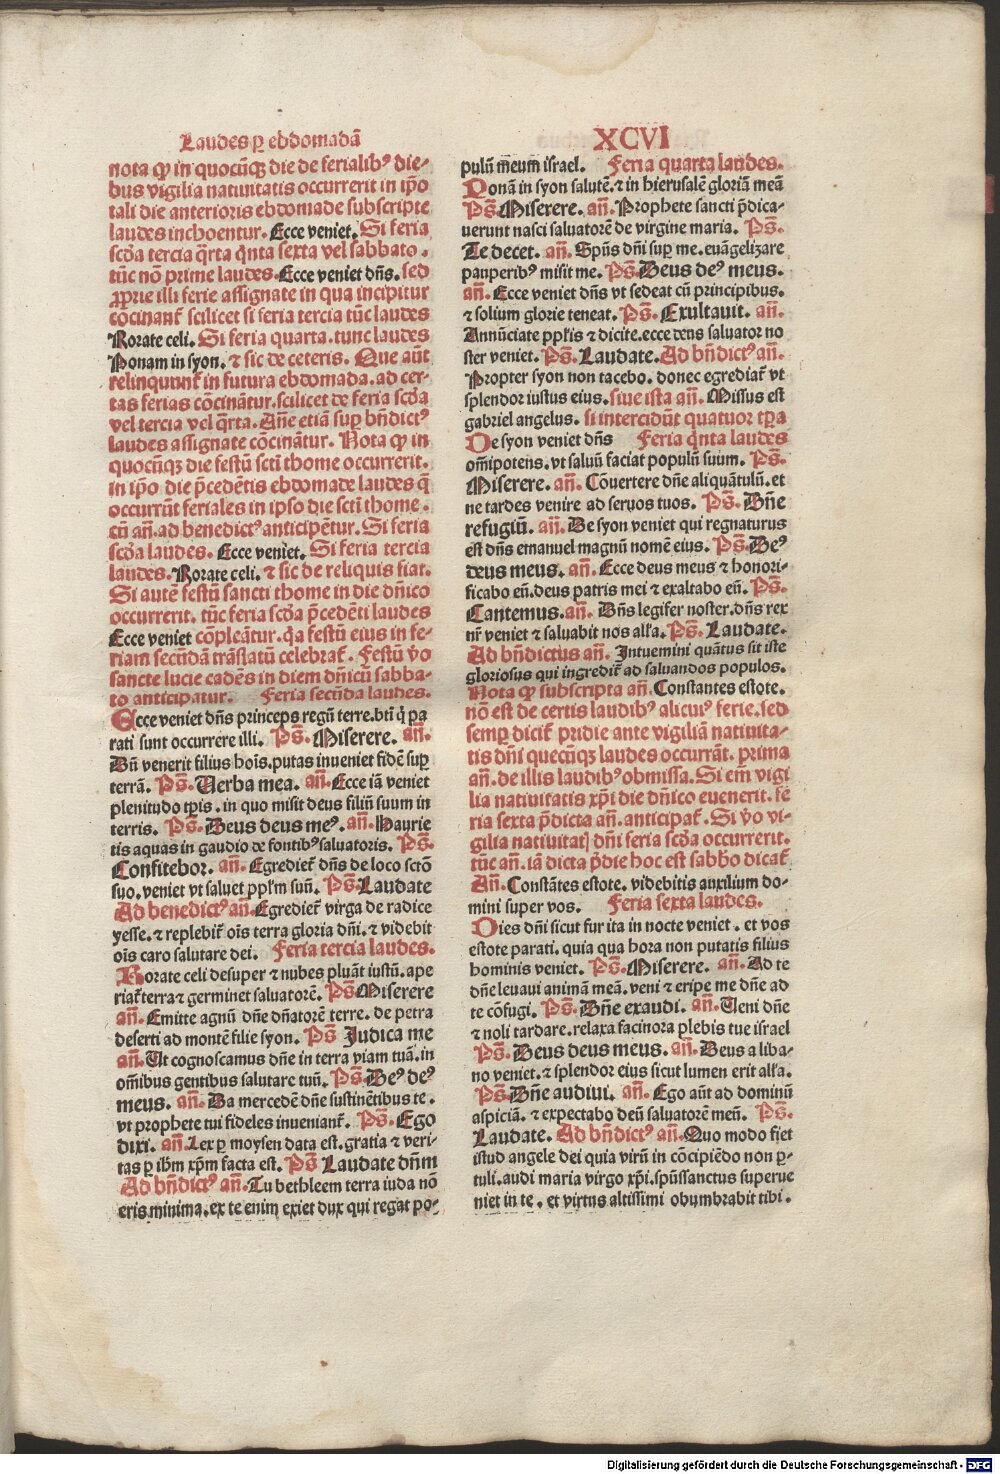 Laudes ꝑ ebdomadā
XCVI
nota ꝙ in quocūqꝫ die de ferialibꝰ die-
bus vigilia natiuitatis occurrerit in ip̄o
tali die anterioris ebdomade subscripte
laudes inchoentur. Ecce veniet. Si feria
scd̄a tercia q̄rta q̄nta sexta vel sabbato.
tūc nō prime laudes. Ecce veniet dn̄s. sed
ꝓprie illi ferie assignate in qua incipitur
cōcinant̄ scilicet si feria tercia tūc laudes
Rorate celi. Si feria quarta. tunc laudes
Ponam in syon. ⁊ sic de ceteris. Que aūt
relinquunt̄ in futura ebdomada. ad cer-
tas ferias cōcinātur. scilicet de feria scd̄a
vel tercia vel q̄rta. Añe etiā suꝑ bn̄dictꝰ
laudes assignate cōcinātur. Nota ꝙ in
quocūqꝫ die festū scti thome occurrerit.
in ip̄o die p̄cedētis ebdomade laudes q̄
occurrūt feriales in ipso die scti thome.
cū añ. ad benedictꝰ anticipētur. Si feria
scd̄a laudes. Ecce veniet. Si feria tercia
laudes. Rorate celi. ⁊ sic de reliquis fiat.
Si autē festū sancti thome in die dn̄ico
occurrerit. tūc feria scd̄a p̄cedēti laudes
Ecce veniet cōpleātur. q̄a festū eius in fe-
riam secūdā trāslatū celebrat̄. Festū v̄o
sancte lucie cadēs in diem dn̄icū sabba-
to anticipatur. Feria secūda laudes.
Ecce veniet dn̄s princeps regū terre. bt̄i q̄ pa
rati sunt occurrere illi. Ps̄. Miserere. añ.
Dū venerit filius hoīs. putas inueniet fidē suꝑ
terrā. Ps̄. Verba mea. añ. Ecce iā veniet
plenitudo tp̄is. in quo misit deus filiū suum in
terris. Ps̄. Deus deus meꝰ. añ. Haurie
tis aquas in gaudio de fontibꝰ saluatoris. Ps̄.
Confitebor. añ. Egrediet̄ dn̄s de loco sctō
suo. veniet vt saluet ppl̄m suū. Ps̄. Laudate
Ad benedictꝰ añ. Egrediet̄ virga de radice
yesse. ⁊ replebit̄ oīs terra gloria dn̄i. ⁊ videbit
oīs caro salutare dei. Feria tercia laudes.
Rorate celi desuper ⁊ nubes pluāt iustū. ape
riat̄ terra ⁊ germinet saluatorē. Ps̄. Miserere
añ. Emitte agnū dn̄e dn̄atorē terre. de petra
deserti ad montē filie syon. Ps̄ Judica me
añ. Ut cognoscamus dn̄e in terra viam tuā. in
om̄ibus gentibus salutare tuū. Ps̄. Deꝰ deꝰ
meus. añ. Da mercedē dn̄e sustinētibus te.
vt prophete tui fideles inueniant̄. Ps̄. Ego
dixi. añ. Lex ꝑ moysen data est. gratia ⁊ veri-
tas ꝑ ih̄m xp̄m facta est. Ps̄ Laudate dn̄m
Ad bn̄dictꝰ añ. Tu bethleem terra iuda nō
eris minima. ex te enim exiet dux qui regat po-
pulū meum israel. Feria quarta laudes.
Ponā in syon salutē. ⁊ in hierusalē gloriā meā
Ps̄. Miserere. añ. Prophete sancti p̄dica-
uerunt nasci saluatorē de virgine maria. Ps̄.
Te decet. añ. Spūs dn̄i suꝑ me. euāgelizare
pauperibꝰ misit me. Ps̄. Deus deꝰ meus.
añ. Ecce veniet dn̄s vt sedeat cū principibus.
⁊ solium glorie teneat. Ps̄. Exultauit. añ.
Annūciate ppl̄is ⁊ dicite. ecce deus saluator no
ster veniet. Ps̄. Laudate. Ad bn̄dictꝰ añ.
Propter syon non tacebo. donec egrediat̄ vt
splendor iustus eius. siue ista añ. Missus est
gabriel angelus. si intercidūt quatuor tp̄a
De syon veniet dn̄s Feria q̄nta laudes
om̄ipotens. vt saluū faciat populū suum. Ps̄.
Miserere. añ. Cōuertere dn̄e aliquātulū. et
ne tardes venire ad seruos tuos. Ps̄. Dn̄e
refugiū. añ. De syon veniet qui regnaturus
est dn̄s emanuel magnū nomē eius. Ps̄. Deꝰ
deus meus. añ. Ecce deus meus ⁊ honori-
ficabo eū. deus patris mei ⁊ exaltabo eū. Ps̄.
Cantemus. añ. Dn̄s legifer noster. dn̄s rex
nr̄ veniet ⁊ saluabit nos all'a. Ps̄. Laudate.
Ad bn̄dictus añ. Intuemini quātus sit iste
gloriosus qui ingredit̄ ad saluandos populos.
Nota ꝙ subscripta añ. Constantes estote.
nō est de certis laudibꝰ alicuiꝰ ferie. sed
semꝑ dicit̄ pridie ante vigiliā natiuita-
tis dn̄i quecūqꝫ laudes occurrāt. prima
añ. de illis laudibꝰ obmissa. Si em̄ vigi
lia natiuitatis xp̄i die dn̄ico euenerit. fe
ria sexta p̄dicta añ. anticipat̄. Si v̄o vi-
gilia natiuitatꝭ dn̄i feria scd̄a occurrerit.
tūc añ. iā dicta p̄die hoc est sabb̄o dicat̄
Añ. Constātes estote. videbitis auxilium do-
mini super vos. Feria sexta laudes.
Dies dn̄i sicut fur ita in nocte veniet. et vos
estote parati. quia qua hora non putatis filius
hominis veniet. Ps̄. Miserere. añ. Ad te
dn̄e leuaui animā meā. veni ⁊ eripe me dn̄e ad
te cōfugi. Ps̄. Dn̄e exaudi. añ. Veni dn̄e
⁊ noli tardare. relaxa facinora plebis tue israel
Ps̄. Deus deus meus. añ. Deus a liba-
no veniet. ⁊ splendor eius sicut lumen erit all'a.
Ps̄. Dn̄e audiui. añ. Ego aūt ad dominū
aspiciā. ⁊ expectabo deū saluatorē meū. Ps̄.
Laudate. Ad bn̄dictꝰ añ. Quo modo fiet
istud angele dei quia virū in cōcipiēdo non ꝑ-
tuli. audi maria virgo xp̄i. spūssanctus superue
niet in te. et virtus altissimi obumbrabit tibi.
Digitalisierung gefördert durch die Deutsche Forschungsgemeinschaft - DFG